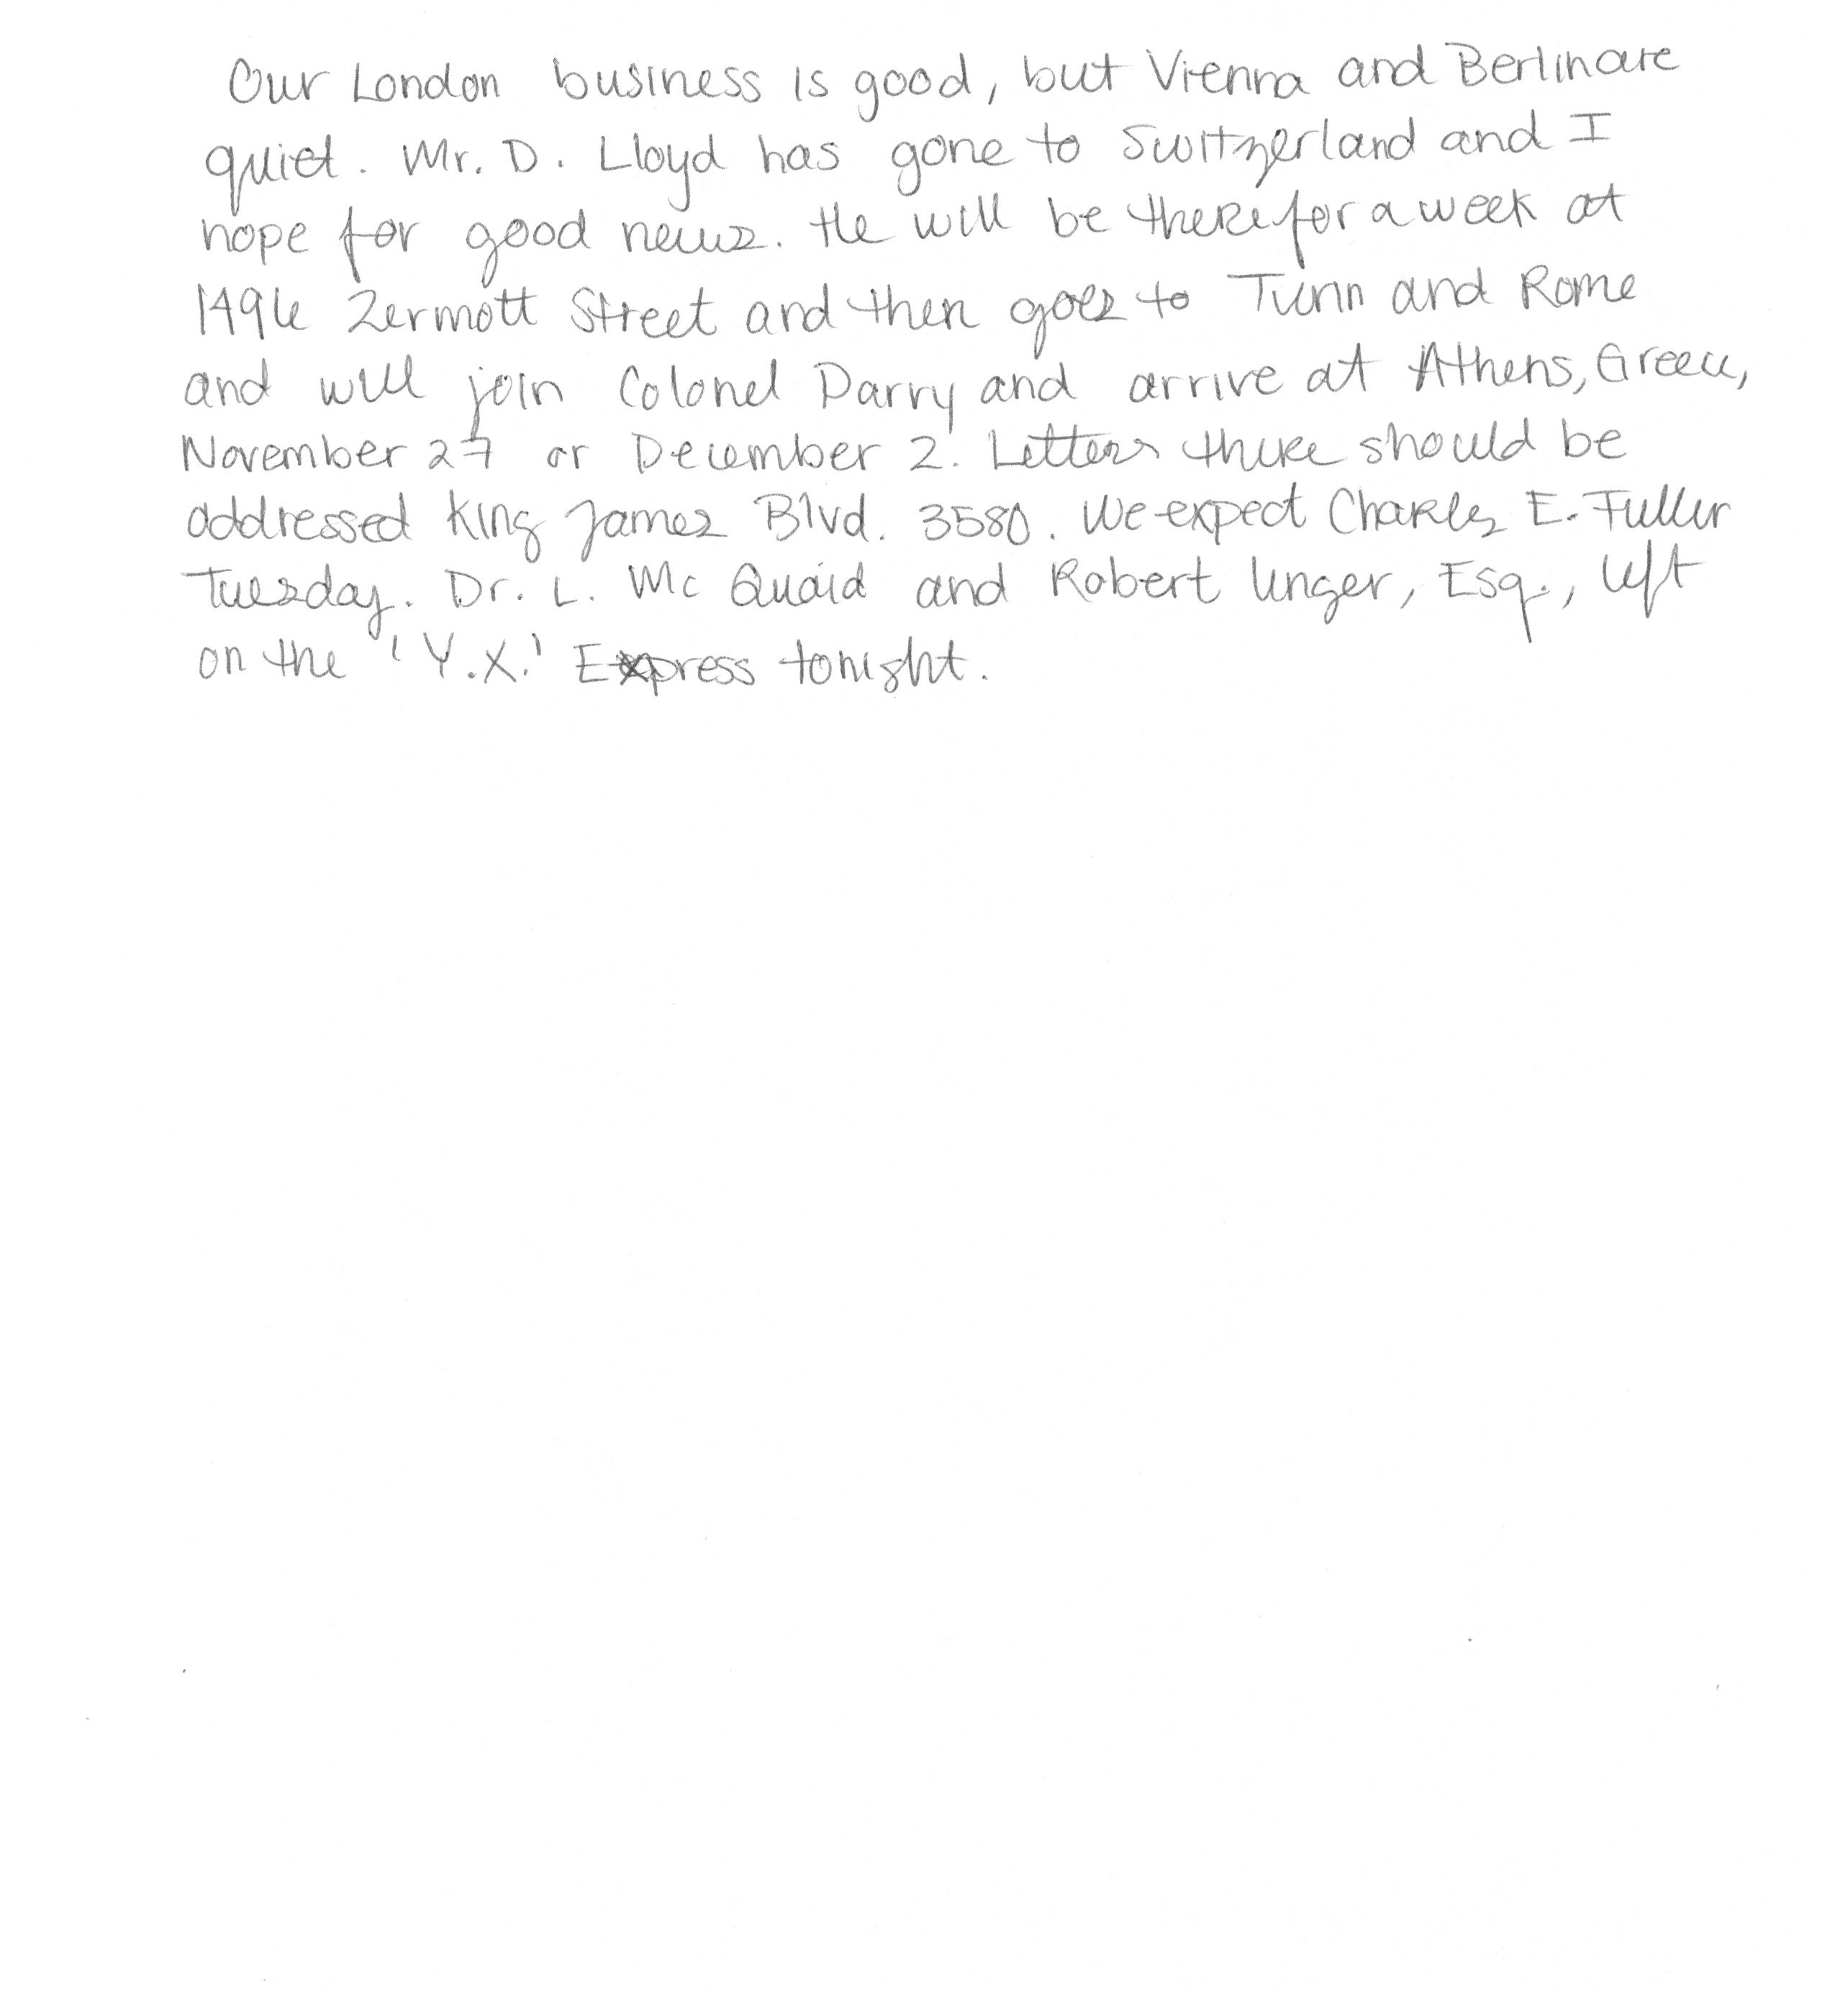 Our London business is good, but Vienna and Berlin are
quiet. Mr. D. Lloyd has gone to Switzerland and I
hope for good news. He will be there for a week at
1496 Zermott Street and then goes to Turin and Rome
and will join Colonel Parry and arrive at Athens, Greece,
November 27 or December 2. Letters there should be
addressed King James Blvd. 3580. We expect Charles E. Fuller
Tuesday. Dr. L. Mc Quaid and Robert Unger, Esq., left
on the 'Y.X.' Express tonight.